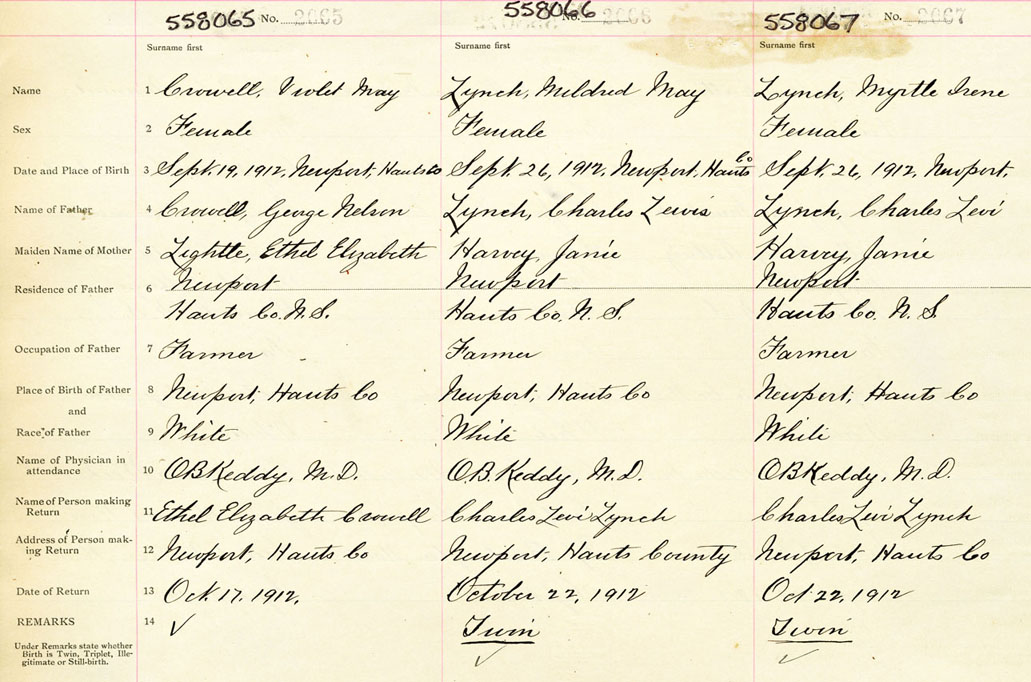 558065 No. 2065 558066 No. 2066 558067 No. 2067
Surname first Surname first Surname first
Name 1 Crowell, Violet May Lynch, Mildred May Lynch, Myrtle Irene
Sex 2 Female Female Female
Date and Place of Birth 3 Sept. 19, 1912, Newport, Hants Co Sept. 26, 1912, Newport, Hants Co Sept. 26, 1912, Newport,
Name of Father 4 Crowell, George Nelson Lynch, Charles Lewis Lynch, Charles Levi
Maiden Name of Mother 5 Lightle, Ethel Elizabeth Harvey, Janie Harvey, Janie
Residence of Father 6 Newport Newport Newport
Hants Co. N.S. Hants Co. N. S. Hants Co. N. S.
Occupation of Father 7 Farmer Farmer Farmer
Place of Birth of Father 8 Newport, Hants Co Newport, Hants Co Newport, Hants Co
and
Race of Father 9 White White White
Name of Physician in
attendance 10 O B Keddy, M.D. O.B. Keddy, M.D. O B Keddy, M.D.
Name of Person making
Return 11 Ethel Elizabeth Crowell Charles Levi Lynch Charles Levi Lynch
Address of Person mak-
ing Return 12 Newport, Hants Co Newport, Hants County Newport, Hants Co
Date of Return 13 Oct. 17. 1912. October 22, 1912 Oct 22, 1912
REMARKS 14 ✓ Twin Twin
Under Remarks state whether
Birth is Twin, Triplet, Ille-
gitimate or Still-birth. ✓ ✓